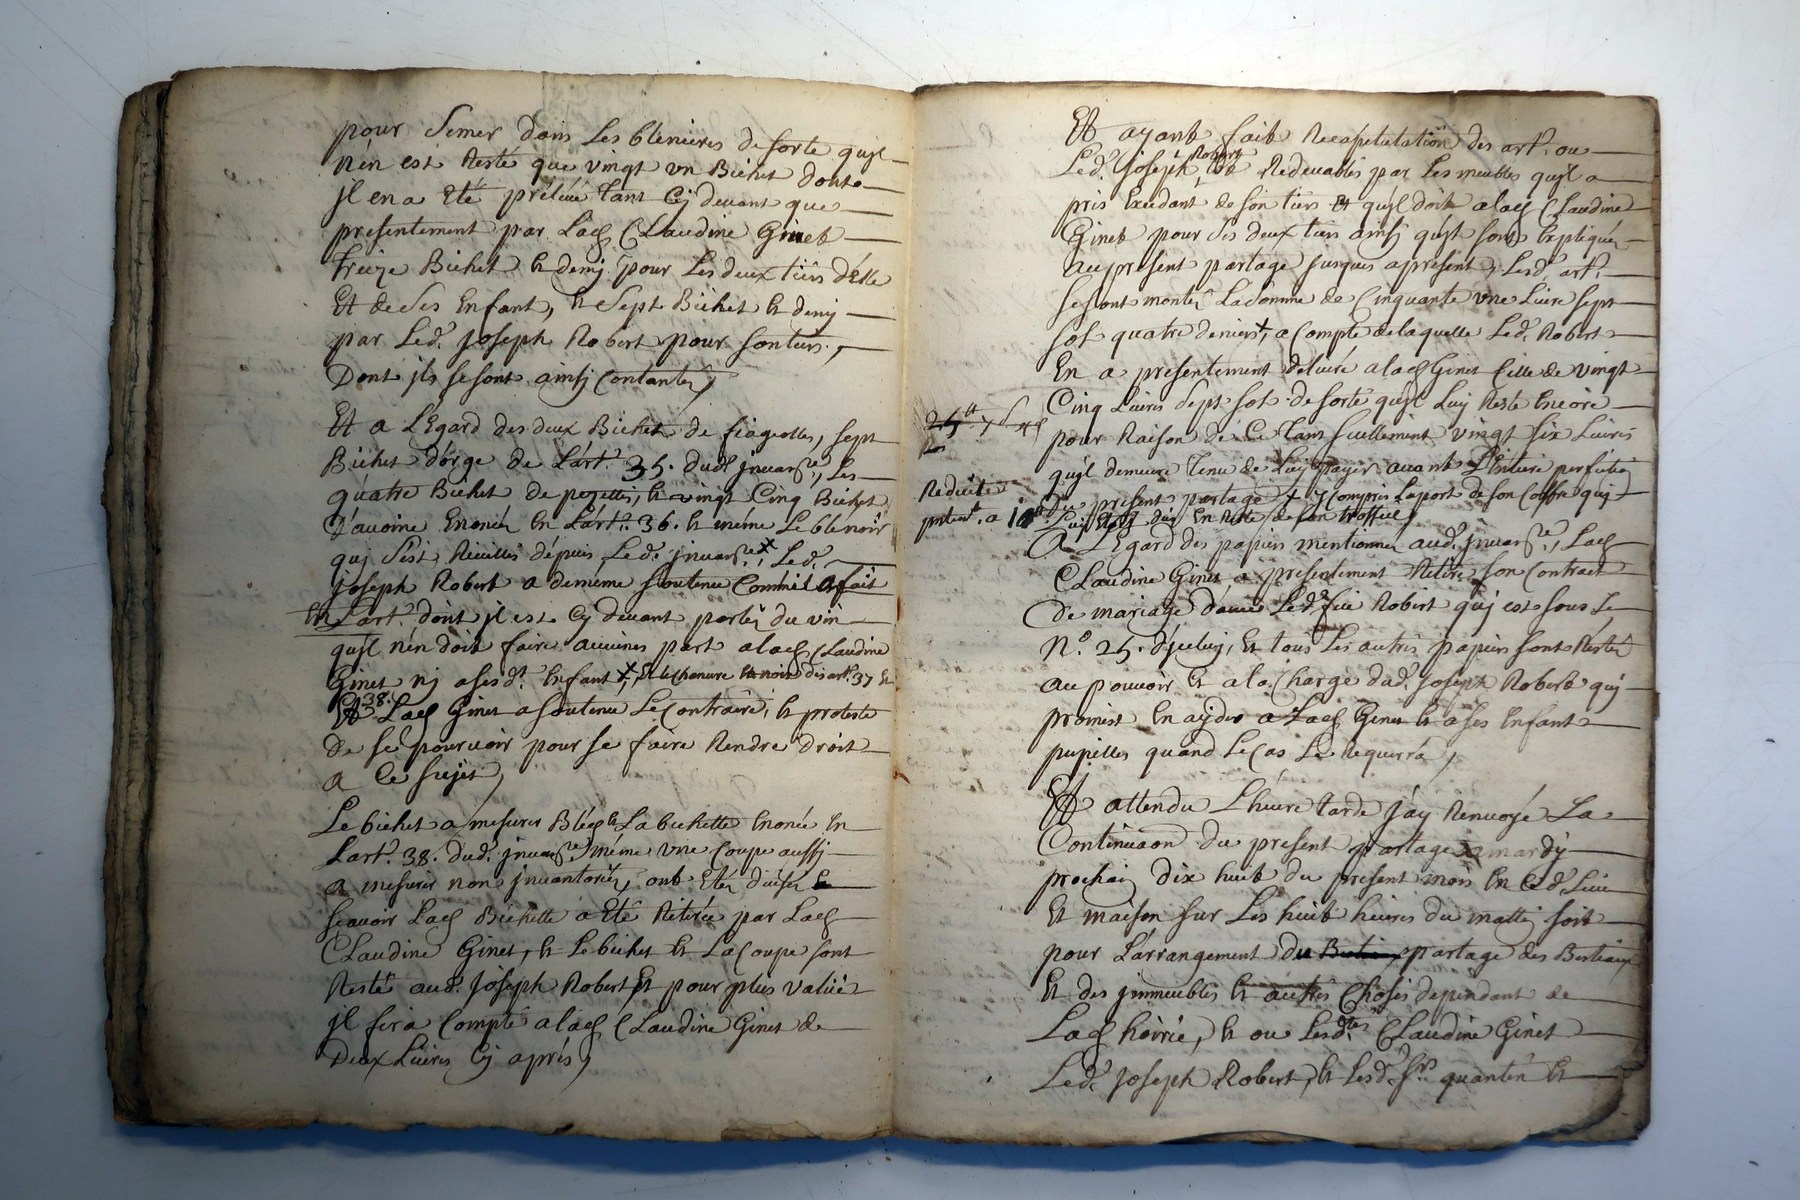 pour Semer dans Les blenieres de sorte qujl
n'en est Resté que vingt vn Bichet dont
jl en a Eté prélévé tant Cy devant que
presentement par Lad Claudine Ginet
treize Bichet et demj pour Les deux tiers d'Elle
Et de Ses Enfant, et Sept Bichet et demj
par Led. Joseph Robert pour son tiers,
Dont jls se sont ainsj Contantéz,
Et a L'Egard des deux Bichet de fiageolles, sept
Bichet d'orge de L'art. 35. dud jnuare, Les
quatre Bichet de pezettes, et vingt Cinq Bichet
d'auoine Enoncéz En L'art. 36. et méme Le blé noir
quj S'est Reüeilles dépuis Led. jnuare x, Led.
Joseph Robert a deméme Soutenu Comme il a fait
En L'art. dont jl est Cy devant parléz du vin
qujl n'en doit faire aucunes part a lad Claudine
Ginet nj a sesd. Enfant x, Et le chanvre des art. 37 et
38.
Et Lad Ginet a soutenu Le Contraire, et proteste
de se pourvoir pour se faire Rendre droit
a Ce Sujet,
Le bichet a mesurer Bléd et La bichette Enoncée En
L'art. 38. dud. jnuare méme vne Coupe aussj
a mesurer non jnuantoriéz, ont Etéz diuisez
scauoir Lad Bichette a Eté Retirée par Lad
Claudine Ginet, et Le bichet et La Coupe sont
Resté aud. Joseph Robert Et pour plus valüe
jl fera Compte a lad Claudine Ginet de
Deux Liures Cy aprés,
Et ayant fait Recapitulation des art. ou
Led. Joseph Robert Redeuables par Les meubles qujl a
pris Excedant de son tiers Et qujl doit a lad Claudine
Ginet pour Ses deux tiers ainsj qu'jl sont Expliquéz
au present partage jusques a present, Lesd. art.
se sont montéz La somme de Cinquante vne Liure sept
sol quatre deniers x, a Compte de laquelle Led. Robert
En a presentement deliuré a lad Ginet Celle de vingt
Cinq Liures Sept sol de sorte qujl Luy Reste Encore
pour Raison de Ce tant seullement vingt six Liures
qujl demeure tenu de Luy payer auant L'Entiere perfection
du present partage x y Compris La port de son Coffre quj
Luy Etoit dûe En Reste de son trossel,
Reduite
a 10
A L'Egard des papiers mentionnez aud. jnuare, Lad
Claudine Ginet a presentement Retiré son Contract
de mariage d'auec Led. feu Robert quj est sous Le
N.° 25. d'jceluy, Et tous Les autres papiers sont Restéz
au pouvoir et a la Charge dud. Joseph Robert quj
promest En ayder a Lad Ginet et a Ses Enfant
pupilles quand Le Cas Le Requerra,
Et attendu L'heure tarde j'ay Renuoyé La
Continuaon du present partage a mardy
prochain dix huit du present mois En Ced. Lieu
Et maison sur Les huit heures du mattin soit
pour L'arrangement du partage des Bestiaux
Et des jmmeubles et autres Choses dependant de
Lad hoirie, et ou Lesd.tes Claudine Ginet
Led. Joseph Robert, et Lesd. Srs. quantin et